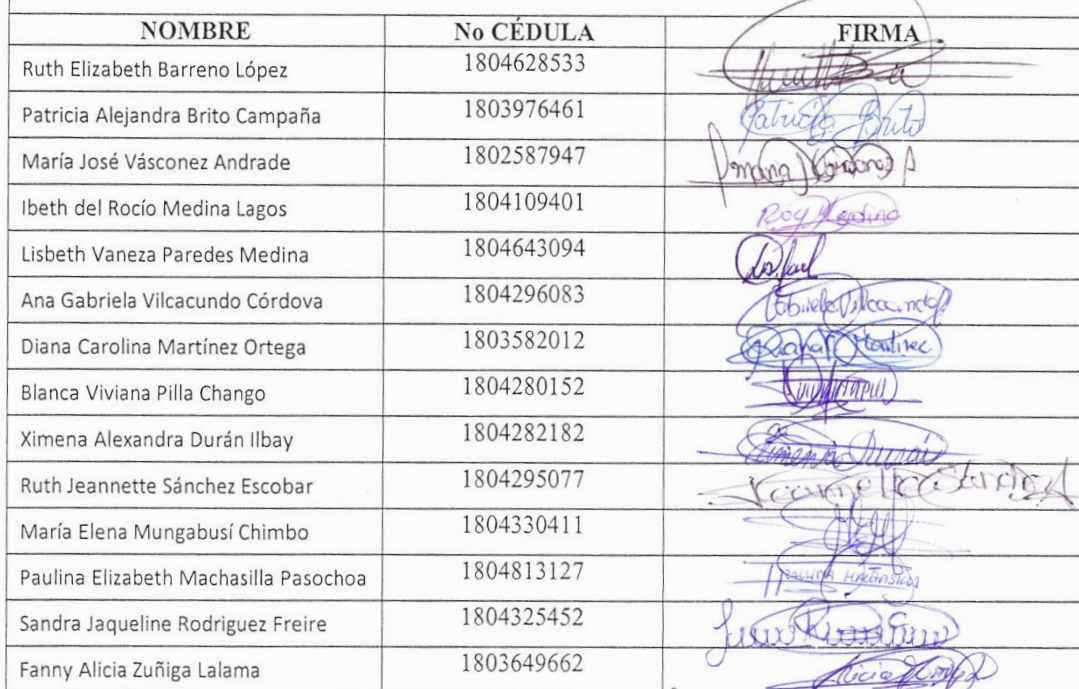 NOMBRE No CÉDULA FIRMA
Ruth Elizabeth Barreno López 1804628533
Patricia Alejandra Brito Campaña 1803976461 Patricia Brito
María José Vásconez Andrade 1802587947
Ibeth del Rocío Medina Lagos 1804109401 Medina
Lisbeth Vaneza Paredes Medina 1804643094
Ana Gabriela Vilcacundo Córdova 1804296083 Gabriela Vilcacundo
Diana Carolina Martínez Ortega 1803582012 Diana Martinez
Blanca Viviana Pilla Chango 1804280152
Ximena Alexandra Durán Ilbay 1804282182 Ximena Durán
Ruth Jeannette Sánchez Escobar 1804295077 Jeannette Sánchez
María Elena Mungabusí Chimbo 1804330411
Paulina Elizabeth Machasilla Pasochoa 1804813127 PAULINA MACHASILLA
Sandra Jaqueline Rodriguez Freire 1804325452
Fanny Alicia Zuñiga Lalama 1803649662 Alicia